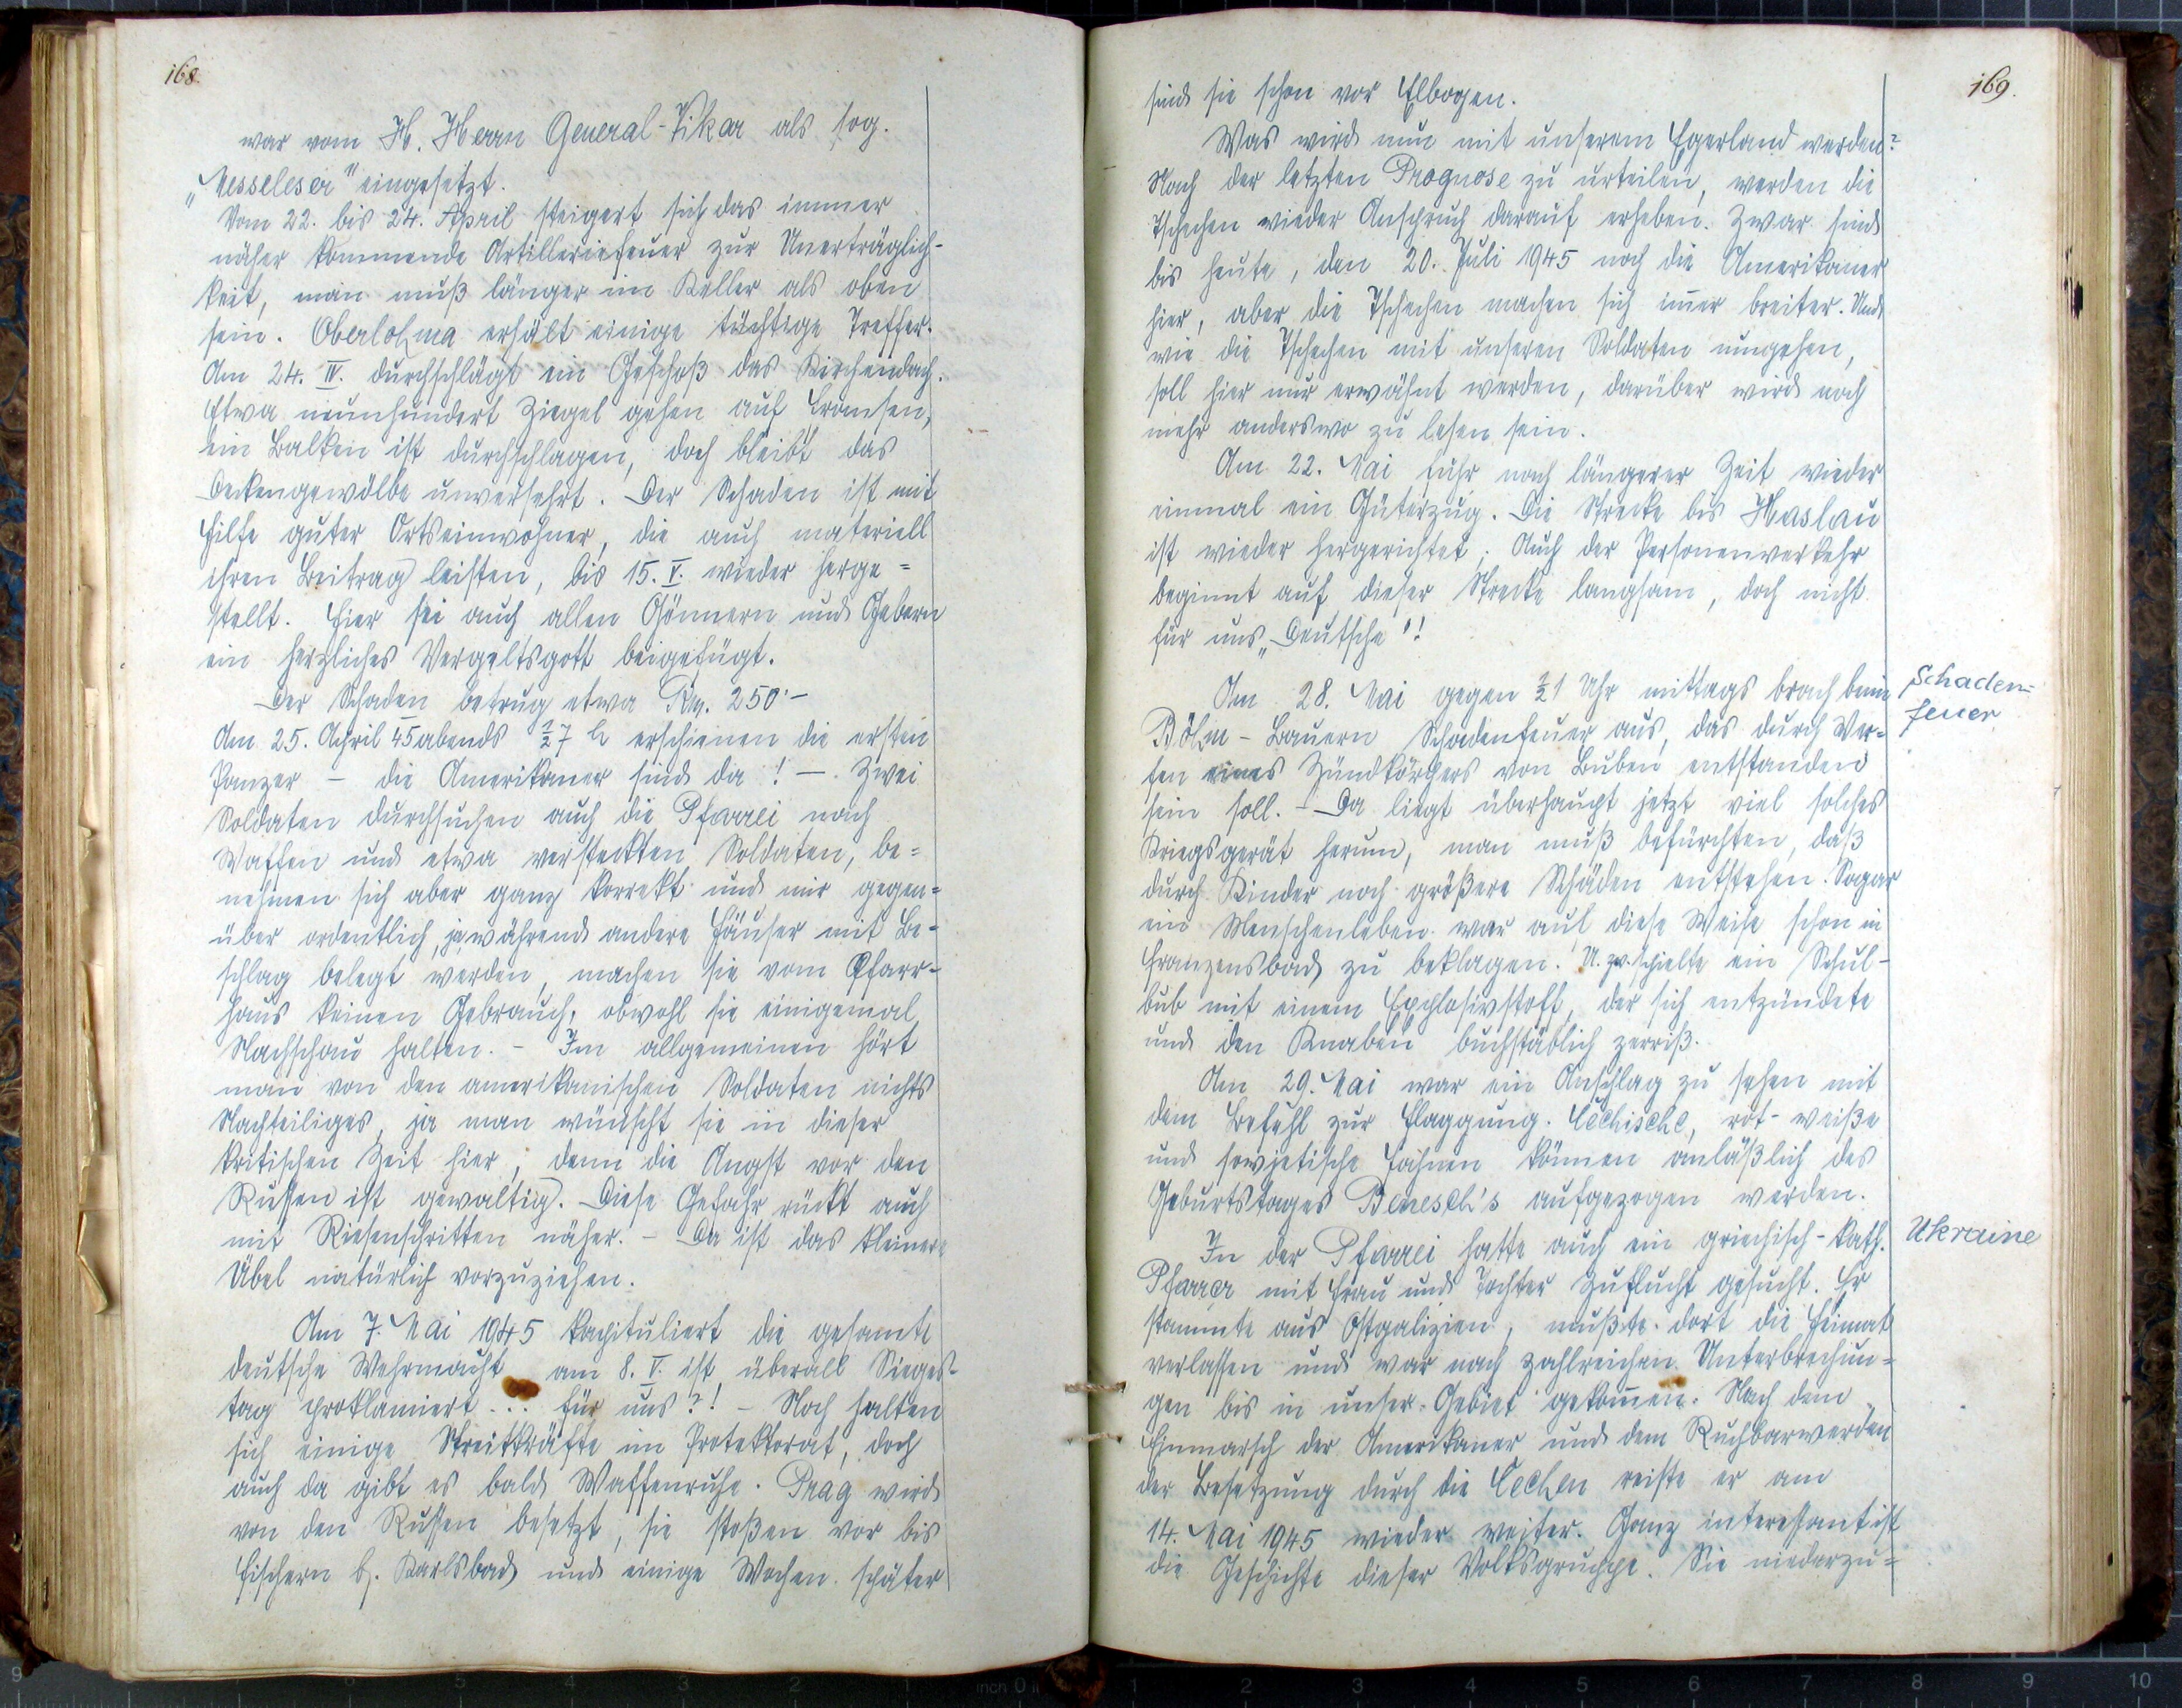 168.
war vom H. Herrn General-Vikar als sog.
"Messeleser" eingesetzt.
Vom 22. bis 24. April steigert sich das immer
näher kommende Artilleriefeuer zur Unerträglich-
keit, man muß länger im Keller als oben
sein. Oberlohma erhält einige tüchtige Treffer.
Am 24. IV. durchschlägt ein Geschoß das Kirchendach.
Etwa neunhundert Ziegel gehen auf Cromsen,
ein Balken ist durchschlagen, doch bleibt das
Deckengewölbe unversehrt. Der Schaden ist mit
Hilfe guter Ortseinwohner, die auch materiell
ihren Beitrag leisten, bis 15. V. wieder herge=
stellt. Hier sei auch allen Gönnern und Gebern
ein herzliches Vergeltsgott beigefügt.
Der Schaden betrug etwa Rm. 250'-
Am 25. April 45 abends ½7 h erschienen die ersten
Panzer - die Amerikaner sind da! -. Zwei
Soldaten durchsuchen auch die Pfarrei nach
Waffen und etwa versteckten Soldaten, be=
nehmen sich aber ganz korrekt und mir gegen=
über ordentlich, ja während andere Häuser mit Be-
schlag belegt werden, machen sie vom Pfarr-
haus keinen Gebrauch, obwohl sie einigemal
Nachschau halten. - Im allgemeinen hört
man von den amerikanischen Soldaten nichts
Nachteiliges, ja man wünscht sie in dieser
kritischen Zeit hier, denn die Angst vor den
Russen ist gewaltig. Diese Gefahr rückt auch
mit Riesenschritten näher. - Da ist das kleinere
Übel natürlich vorzuziehen.
Am 7. Mai 1945 kapituliert die gesamte
deutsche Wehrmacht am 8. V. ist überall Sieges-
tag proklamiert ... für uns?! - Noch halten
sich einige Streitkräfte im Protektorat, doch
auch da gibt es bald Waffenruhe. Prag wird
von den Russen besetzt, sie stoßen vor bis
Fischern b. Karlsbad und einige Wochen später
169.
sind sie schon vor Elbogen.
Was wird nun mit unserem Egerland werden?
Nach der letzten Prognose zu urteilen, werden die
Tschechen wieder Anspruch darauf erheben. Zwar sind
bis heute, den 20. Juli 1945 noch die Amerikaner
hier, aber die Tschechen machen sich im̄er breiter. Und
wie die Tschechen mit unseren Soldaten umgehen,
soll hier nur erwähnt werden, darüber wird noch
mehr anderswo zu lesen sein.
Am 22. Mai fuhr nach längerer Zeit wieder
einmal ein Güterzug. Die Strecke bis Haslau
ist wieder hergerichtet; Auch der Personenverkehr
beginnt auf dieser Strecke langsam, doch nicht
für uns „Deutsche"!
Am 28. Mai gegen ½1 Uhr mittags brach beim
Schaden=
feuer
Böhm-Bauern Schadenfeuer aus, das durch Wer=
fen eines Zündkörpers von Buben entstanden
sein soll. - Da liegt überhaupt jetzt viel solches
Kriegsgerät herum, man muß befürchten, daß
durch Kinder noch größere Schäden entstehen. Sogar
ein Menschenleben war auf diese Weise schon in
Franzensbad zu beklagen. U. zw. spielte ein Schul-
bub mit einem Explosivstoff, der sich entzündete
und den Knaben buchstäblich zerriß.
Am 29. Mai war ein Anschlag zu sehen mit
dem Befehl zur Flaggung. Čechische, rot-weiße
und sowjetische Fahnen können anläßlich des
Geburtstages Benesch's aufgezogen werden.
In der Pfarrei hatte auch ein griechisch-kath.
Ukraine
Pfarrer mit Frau und Tochter Zuflucht gesucht. Er
stammte aus Ostgalizien, mußte dort die Heimat
verlassen und war nach zahlreichen Unterbrechun=
gen bis in unser Gebiet gekom̄en. Nach dem
Einmarsch der Amerikaner und dem Ruchbarwerden
der Besetzung durch die Čechen reiste er am
14. Mai 1945 wieder weiter. Ganz interessant ist
die Geschichte dieser Volksgruppe. Sie niederzu=